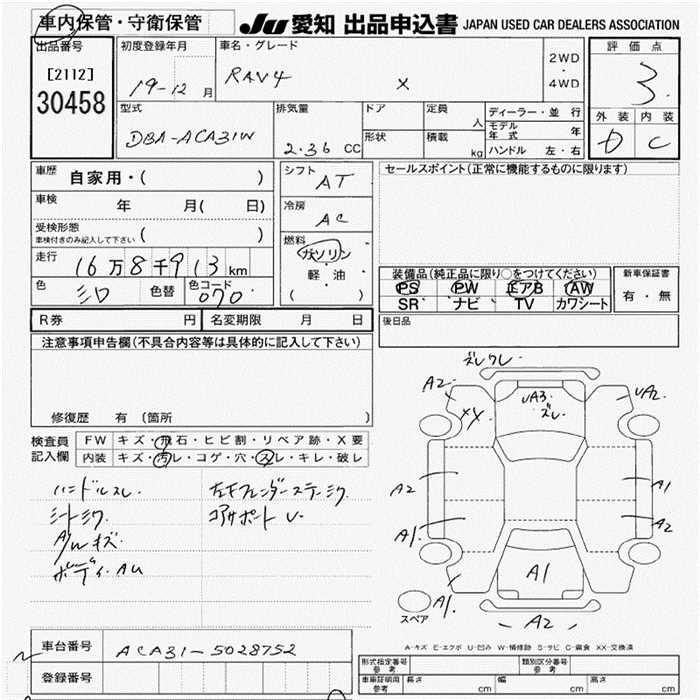 車内保管・守衛保管
JU 愛知 出品申込書 JAPAN USED CAR DEALERS ASSOCIATION
出品番号
[2112]
30458
初度登録年月
19-12 月
車名・グレード
RAV4 X
2WD
・
4WD
評価点
3
外装 内装
D C
型式
DBA-ACA31W
排気量
2.36 CC
ドア
形状
定員
人
積載
kg
ディーラー・並行
モデル年式 年
ハンドル 左・右
車歴
自家用・( )
車検
年 月( 日)
受検形態
車検付きのみ記入して下さい ( )
走行
16万8千913km
色
シロ
色替
色コード
070
シフト
AT
冷房
AC
燃料
ガソリン
・
軽・油
( )
セールスポイント(正常に機能するものに限ります)
装備品(純正品に限り○をつけてください)
PS PW エアB AW
SR ナビ TV カワシート
新車保証書
有・無
後日品
R券 円
名変期限 月 日
注意事項申告欄(不具合内容等は具体的に記入して下さい)
修復歴 有(箇所 )
検査員
記入欄
FW キズ・飛石・ヒビ割・リペア跡・X要
内装 キズ・汚レ・コゲ・穴・スレ・キレ・破レ
ハンドルスレ.
シートミク
A/Wキズ
ボディ.AU
左右フェンダーステーミク
コアサポートU.
ズレワレ.
A2
XX
UA3
ズレ.
UA2
A2
A1
A1
A2
A1
A1
A2
スペア
A-キズ E-エクボ U-凹み W-補修跡 S-サビ C-腐食 XX-交換済
車台番号
ACA31-5028752
登録番号
形式指定番号
参考
類別区分番号
参考
車庫証明用
参考
長さ cm
幅 cm
高さ cm